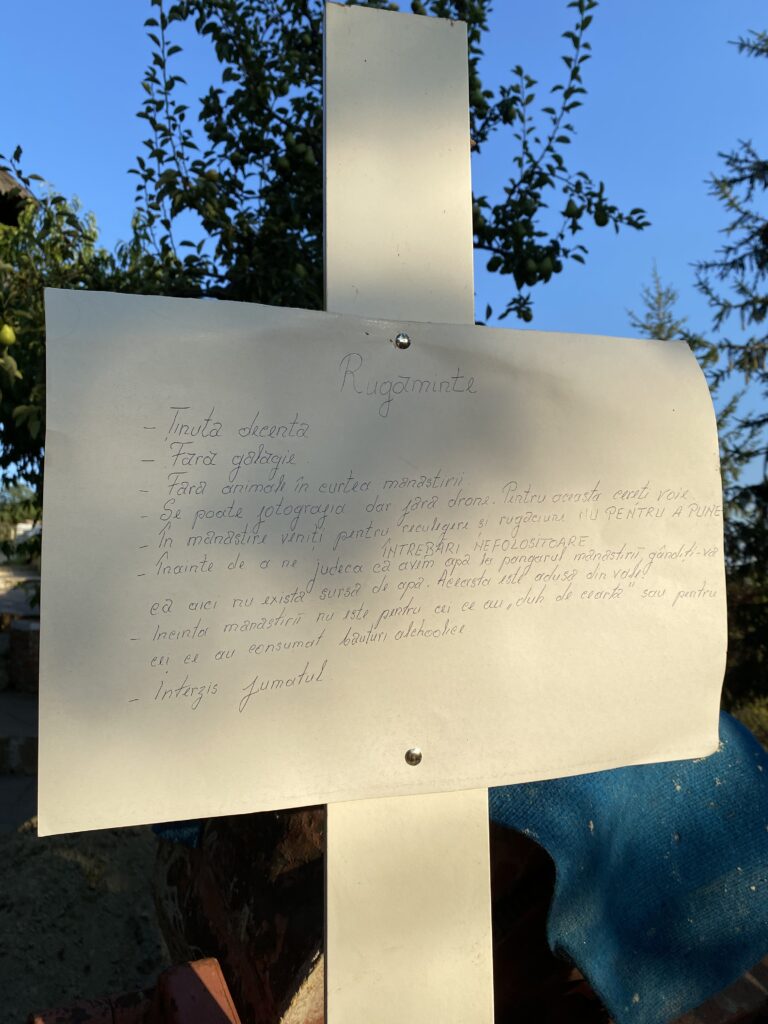 Rugăminte
- Ținută decentă
- Fără gălăgie.
- Fără animale în curtea mănăstirii.
- Se poate fotografia dar fără drone. Pentru aceasta cereți voie.
- În mănăstire veniți pentru reculegere și rugăciune NU PENTRU A PUNE
ÎNTREBĂRI NEFOLOSITOARE
- Înainte de a ne judeca că avem apă la pangarul mănăstirii, gândiți-vă
că aici nu există sursă de apă. Aceasta este adusă din vale!
- Incinta mănăstirii nu este pentru cei ce au „duh de ceartă" sau pentru
cei ce au consumat băuturi alchoolice
- Interzis fumatul